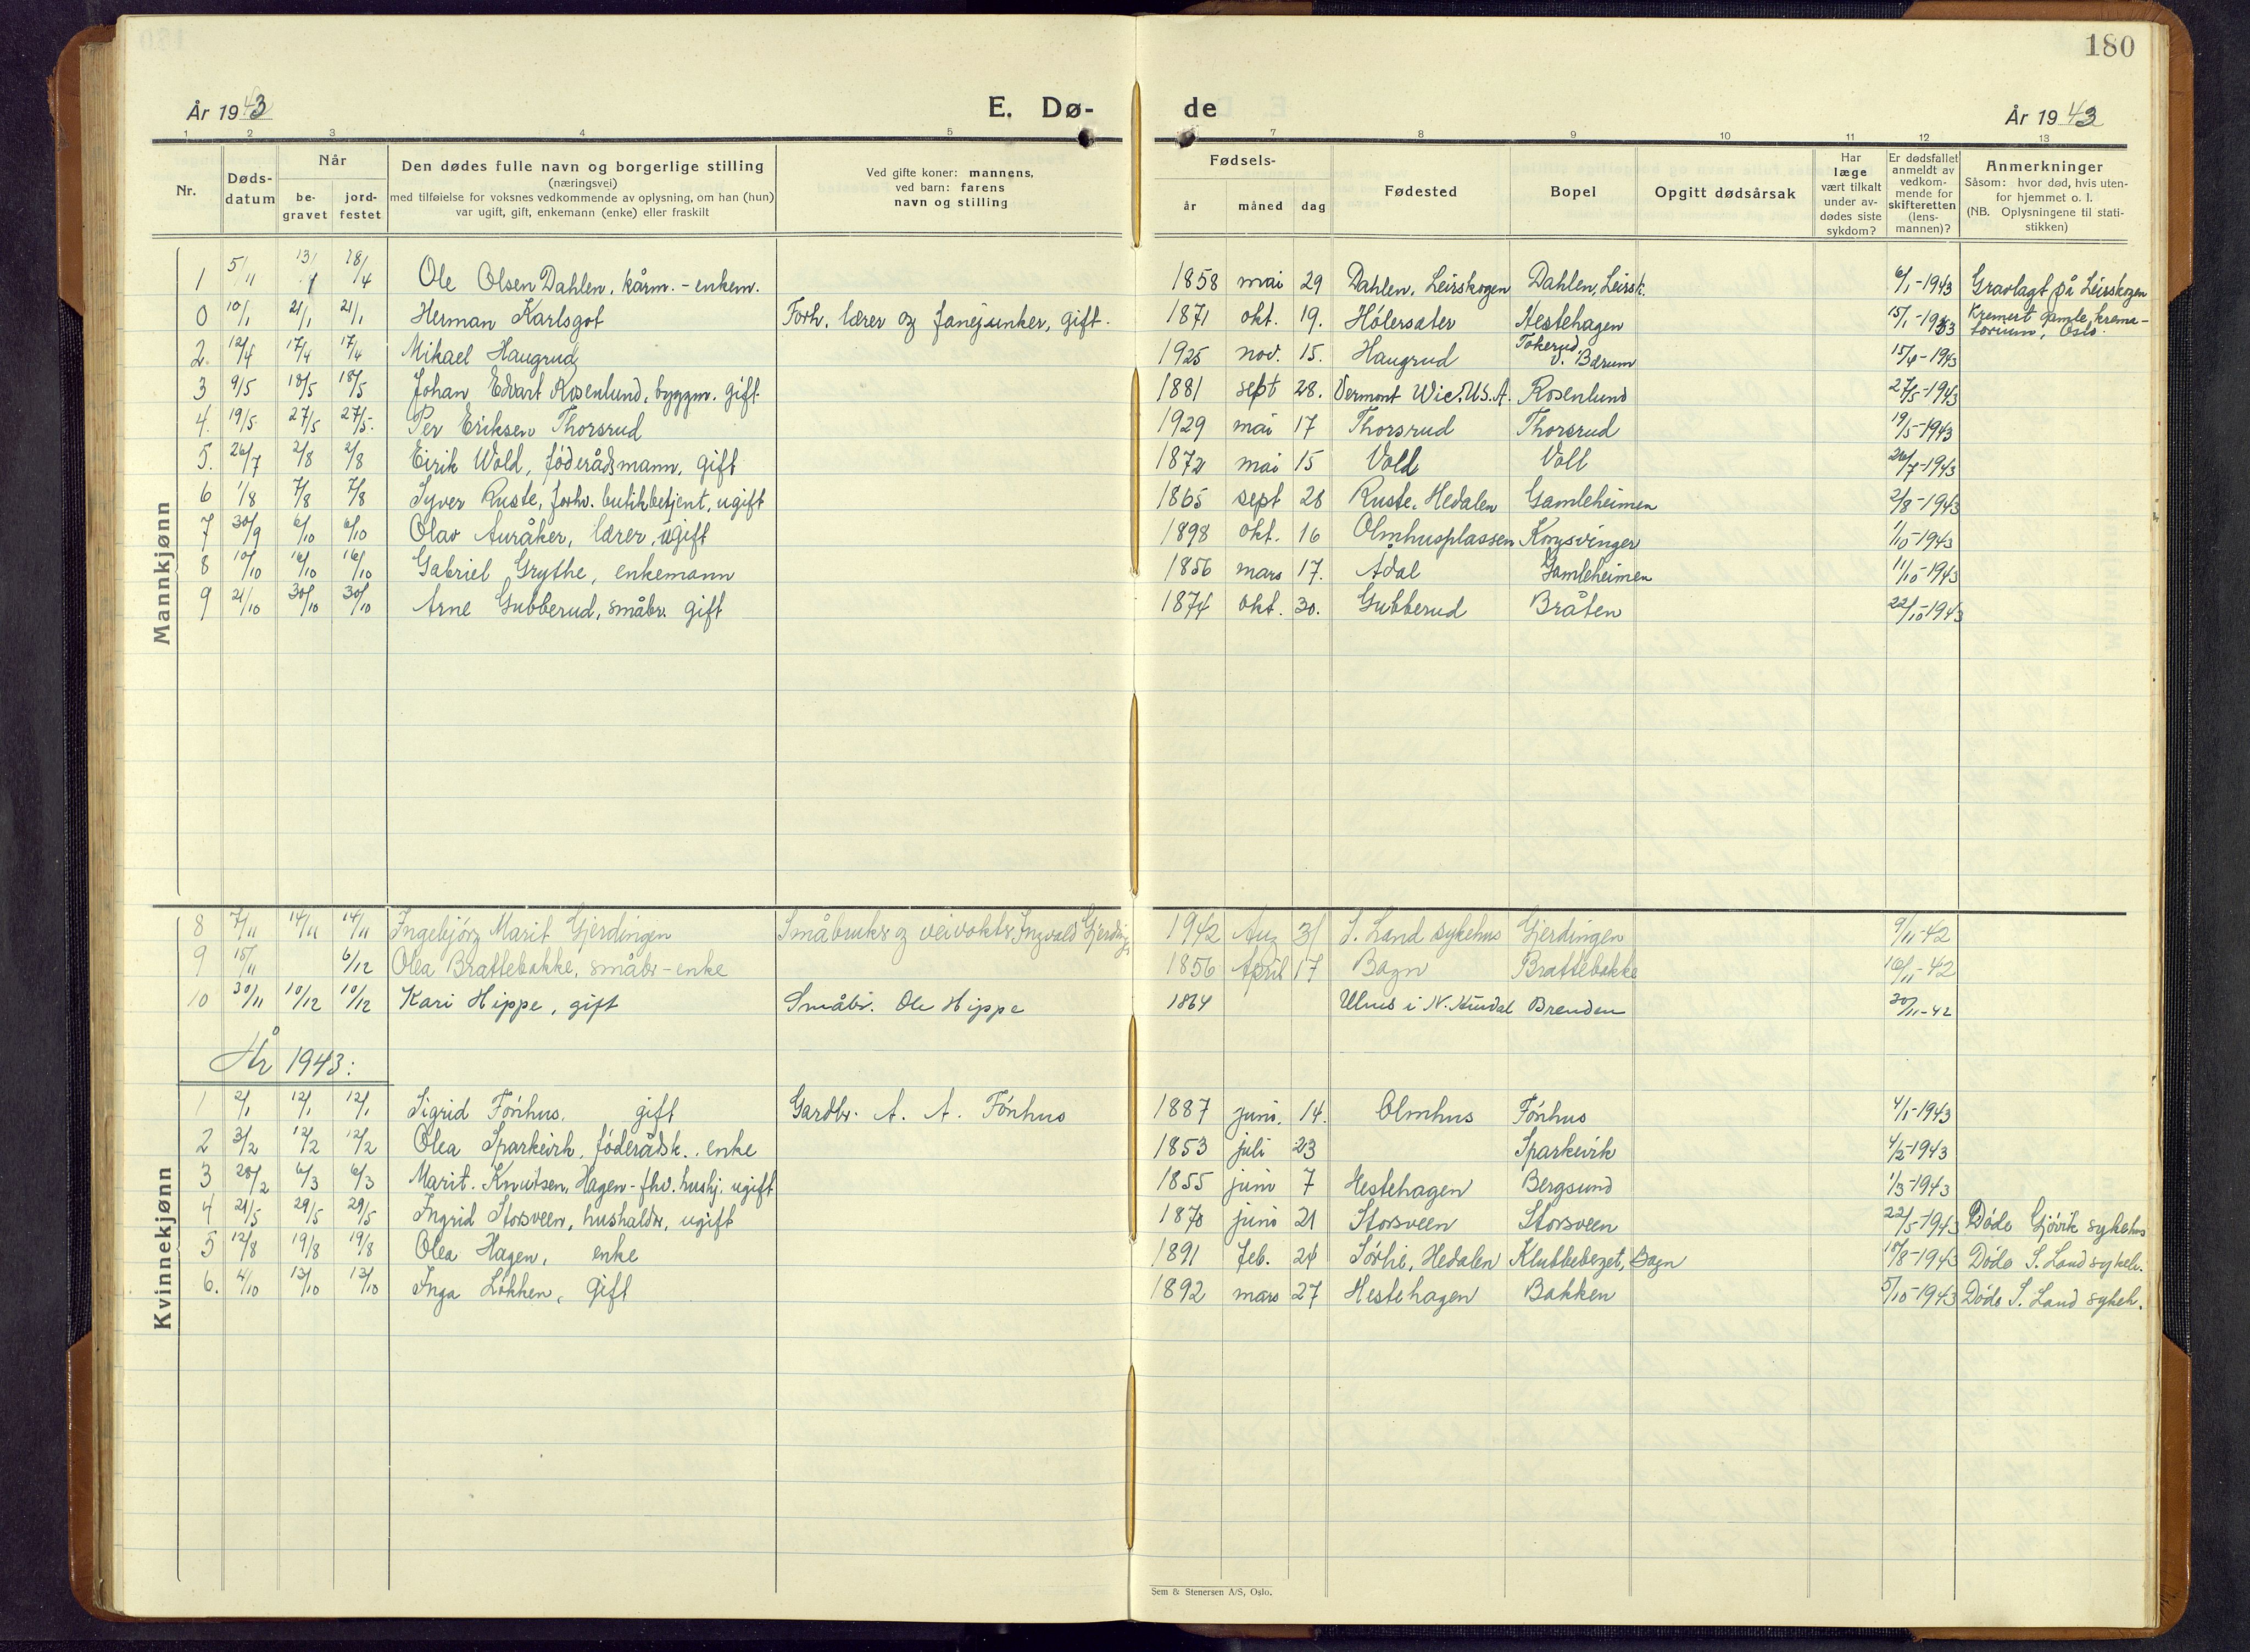 180
År 1943
E. Dø-
de
År 1943
1 2 3 4 5 7 8 9 10 11 12 13
Nr.
Døds-
datum
Når
be-
gravet
jord-
festet
Den dødes fulle navn og borgerlige stilling
(næringsvei)
med tilføielse for voksnes vedkommende av oplysning, om han (hun)
var ugift, gift, enkemann (enke) eller fraskilt
Ved gifte koner: mannens,
ved barn: farens
navn og stilling
Fødsels-
år måned dag
Fødested
Bopel
Opgitt dødsårsak
Har
læge
vært tilkalt
under av-
dødes siste
sykdom?
Er dødsfallet
anmeldt av
vedkom-
mende for
skifteretten
(lens-
mannen)?
Anmerkninger
Såsom: hvor død, hvis uten-
for hjemmet o. l.
(NB. Oplysningene til stati-
stikken)
Mannkjønn
1 Ole Olsen Dahlen, kårm. - enkem. 1858 mai 29 Dahlen, Leirskogen Dahlen, Leirsk. 6/1-1943 Gravlagt på Leirskogen
0 10/1 21/1 21/1 Herman Karlsgot Forh. lærer og fanejunker, gift. 1871 okt. 19. Hölersæter Hestehagen Kremert gamle krema-
torium, Oslo.
2. 12/4 17/4 17/4 Mikael Haugrud 1925 nov. 15. Haugrud Tokerud
V. Bærum 15/4-1943
3 9/5 18/5 18/5 Johan Edvart Rosenlund, byggm. gift 1881 sept 28. Vermont Wic. U.S.A. Rosenlund 27/5-1943
4. 19/5 27/5 27/5. Per Eriksen Thorsrud 1929 mai 17 Thorsrud Thorsrud 19/5-1943
5. 26/7 2/8 2/8 Eirik Wold, föderådsmann, gift 1872 mai 15 Vold Voll 26/7-1943
6 1/8 7/8 7/8 Syver Ruste, forhv. butikbetjent, ugift 1865 sept 28 Ruste, Hedalen Gamleheimen 2/8-1943
7 30/9 6/10 6/10 Olav Auråker, lærer, ugift 1898 okt. 16 Olmhusplassen Kongsvinger 1/10-1943
8 10/10 16/10 16/10 Gabriel Grythe, enkemann 1856 mars 17. Ådal Gamleheimen 11/10-1943
9 21/10 30/10 30/10 Arne Gubberud, småbr. gift 1874 okt. 30. Gubberud Bråten 22/10-1943
8 7/11 14/11 14/11 Ingebjörg Marit Gjerdingen Småbruks og veivokter Ingvald Gjerdingen 1942 Aug 31 S. Land sykehus Gjerdingen 9/11-42
9 15/11 6/12 Olea Brattebakke, småbr-enke 1856 April 17 Bagn Brattebakke 16/11-42
10 30/11 10/12 10/12 Kari Hippe, gift Småbr. Ole Hippe 1864 Ulnes i N. Brenden 30/11-42
År 1943:
Kvinnekjønn
1 2/1 12/1 12/1 Sigrid Fönhus, gift Gardbr. A. A. Fönhus 1887 juni. 14. Olmhus Fönhus 4/1-1943
2 3/2 12/2 12/2 Olea Sparkevik, föderådsk. enke 1853 juli 23 Sparkevik 4/2-1943
3 28/2 6/3 6/3 Marit. Knutsen, Hagen - fhv. hushj. ugift 1855 juni 7 Hestehagen Bergsund 1/3-1943
4 21/5 29/5 29/5 Ingrid Storsveen, husholdr, ugift 1878 juni 21 Storsveen Storsveen 22/5-1943 Döde Gjövik sykehus
5 12/8 19/8 19/8 Olea Hagen, enke 1891 feb. 24 Sörli, Hedalen Klubbeberget, Bagn Döde S. Land sykeh.
6. 4/10 13/10 13/10 Inga Lökken, gift 1892 mars 27 Hestehagen Bakken 5/10-1943 Döde S. Land sykeh.
Sem & Stenersen A/S, Oslo.